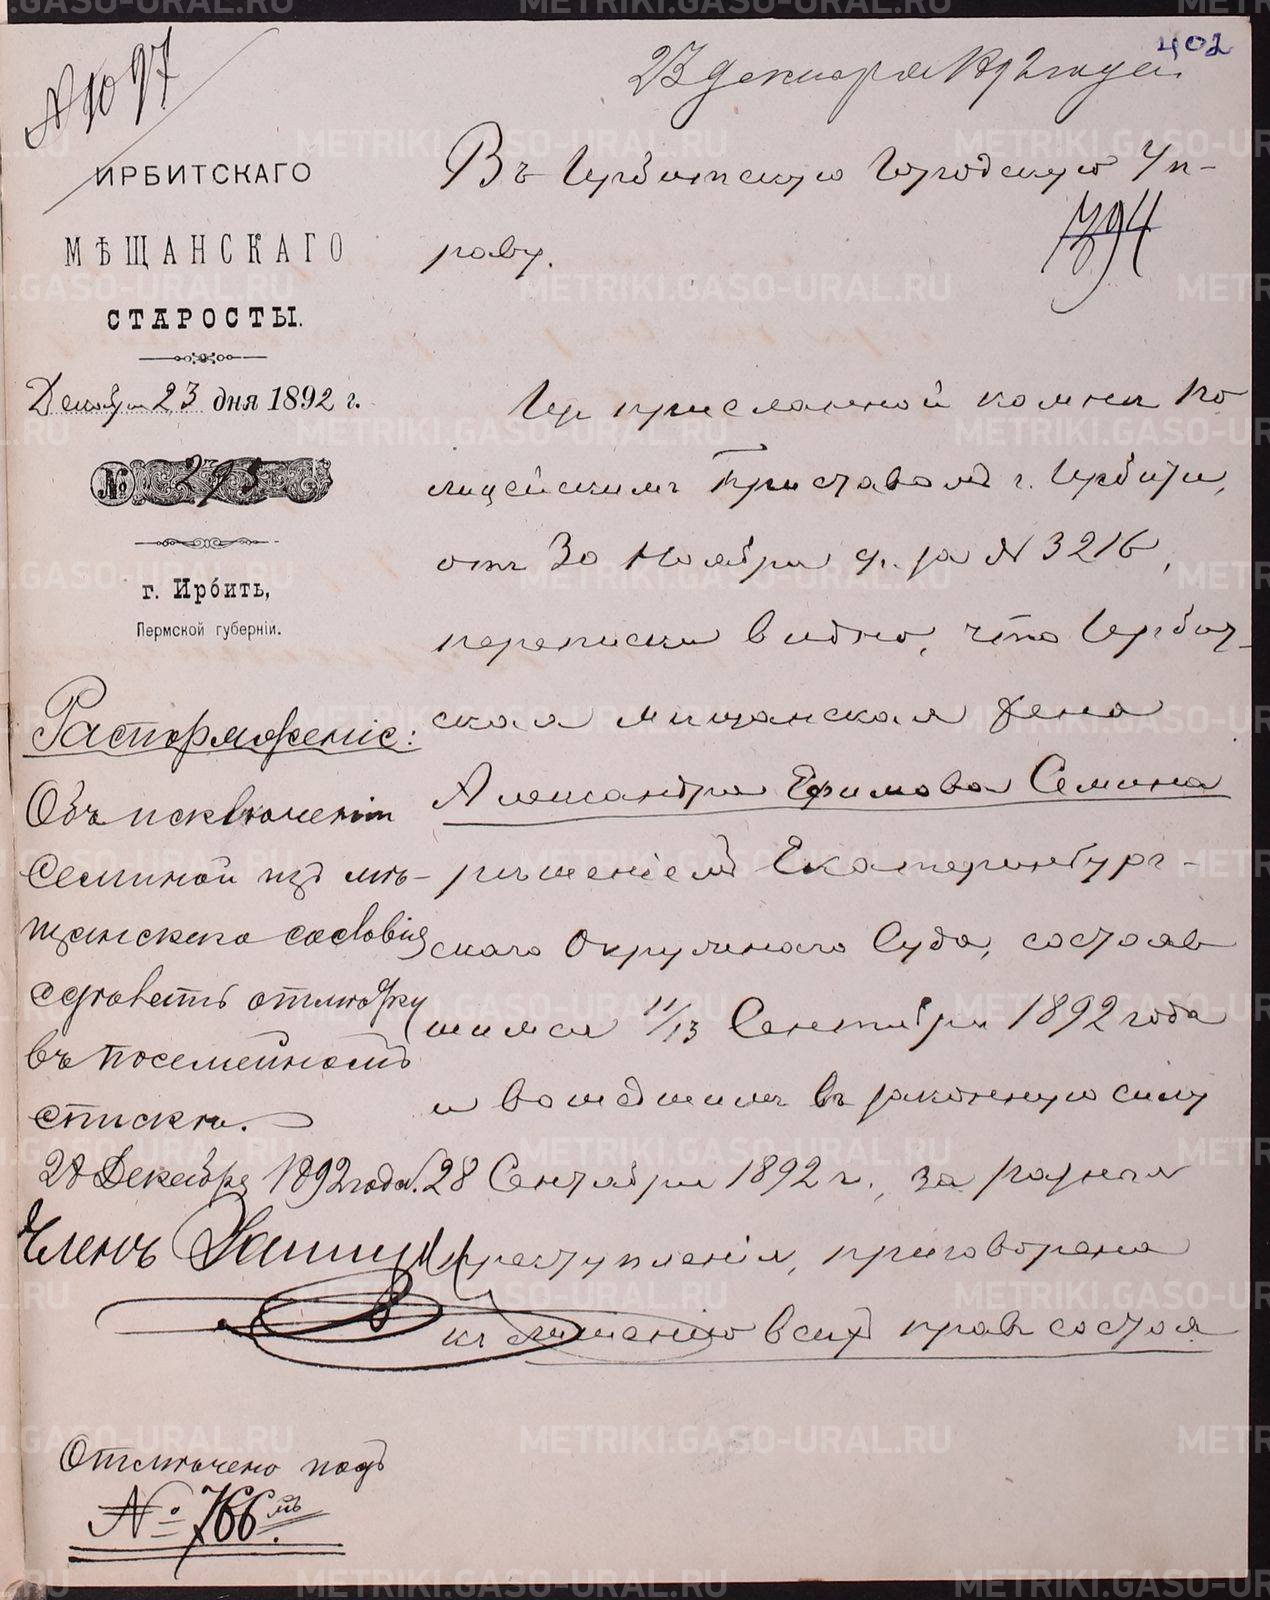 402
23 декабря 1892 года
№ 1097
ИРБИТСКАГО
МѢЩАНСКАГО
СТАРОСТЫ.
Декабря 23 дня 1892 г.
№ 295
г. Ирбить,
Пермской губерніи.
Въ Ирбитскую Городскую Уп-
раву.
1394
Из присланной комнѣ По
лицейскимъ Приставомъ г. Ирбити,
отъ 30 Ноября с. г. за № 3216,
переписки видно, что Ирбит-
ская мѣщанская жена
Александра Ефимова Семина
рѣшеніемъ Екатеринбург-
скаго Окружнаго Суда, состояв
шимся 11/13 Сентября 1892 года
и вошедшимъ въ законную силу
28 Сентября 1892 г., за разныя
преступленія, приговорена
къ лишенію всѣхъ правъ состоя
Распоряженіе:
Объ исключеніи
Семиной изъ мѣ-
щанскаго сословія
сдѣлать отмѣтку
въ посемейномъ
спискѣ.
28 Декабря 1892 года.
Членъ
Отмѣчено подъ
№ 766 мъ
METRIKI.GASO-URAL.RU